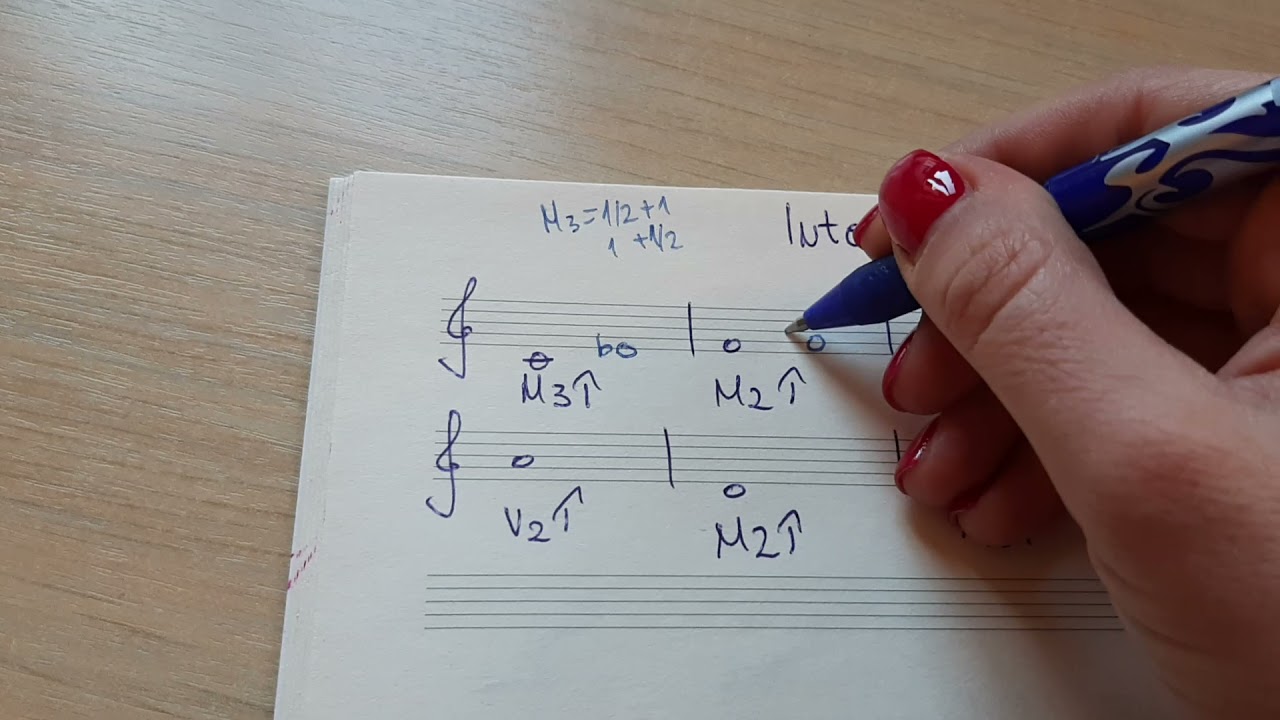 M3=1/2+1
1 +1/2
M3↑ M2↑
V2↑ M2↑